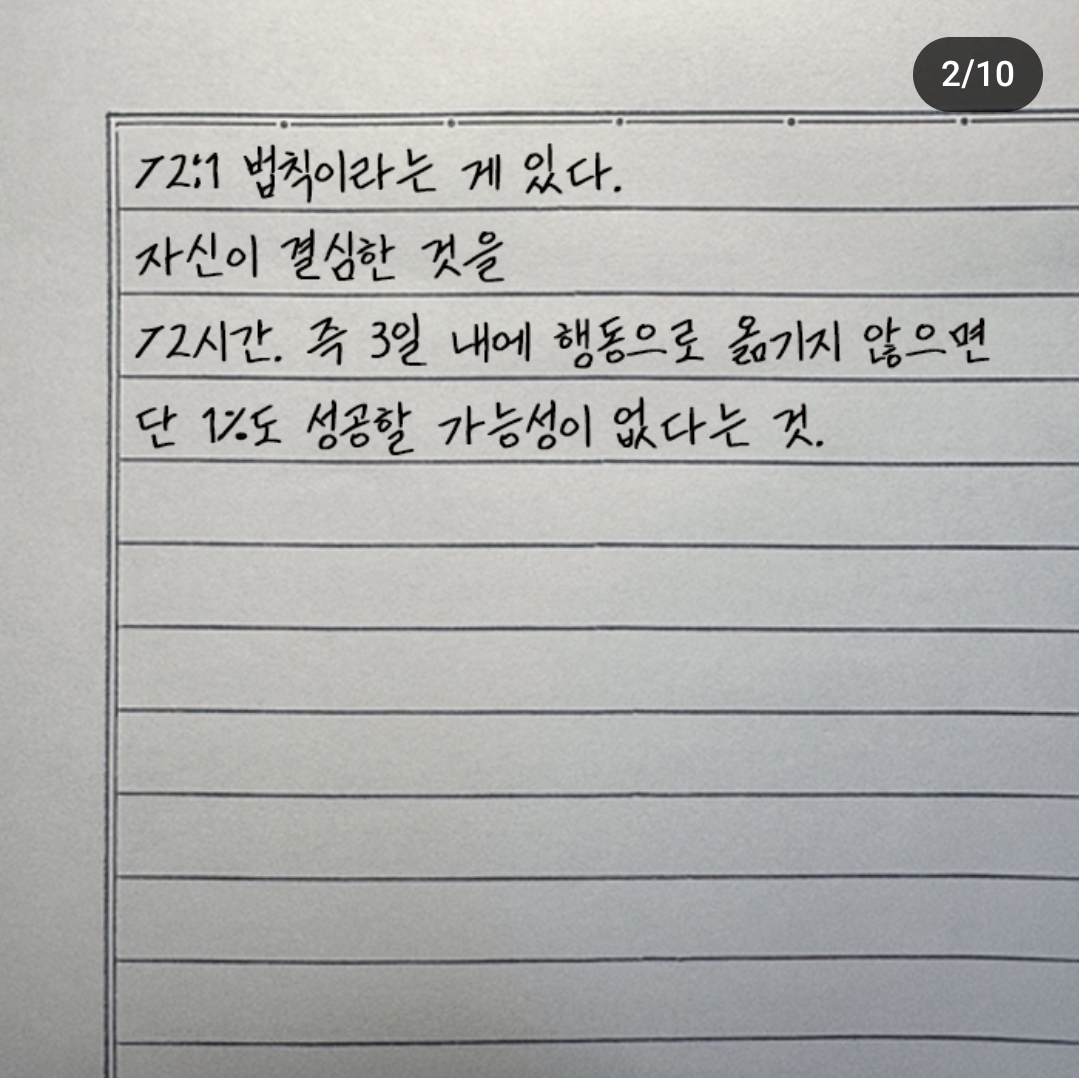 2/10
72:1 법칙이라는 게 있다.
자신이 결심한 것을
72시간. 즉 3일 내에 행동으로 옮기지 않으면
단 1%도 성공할 가능성이 없다는 것.